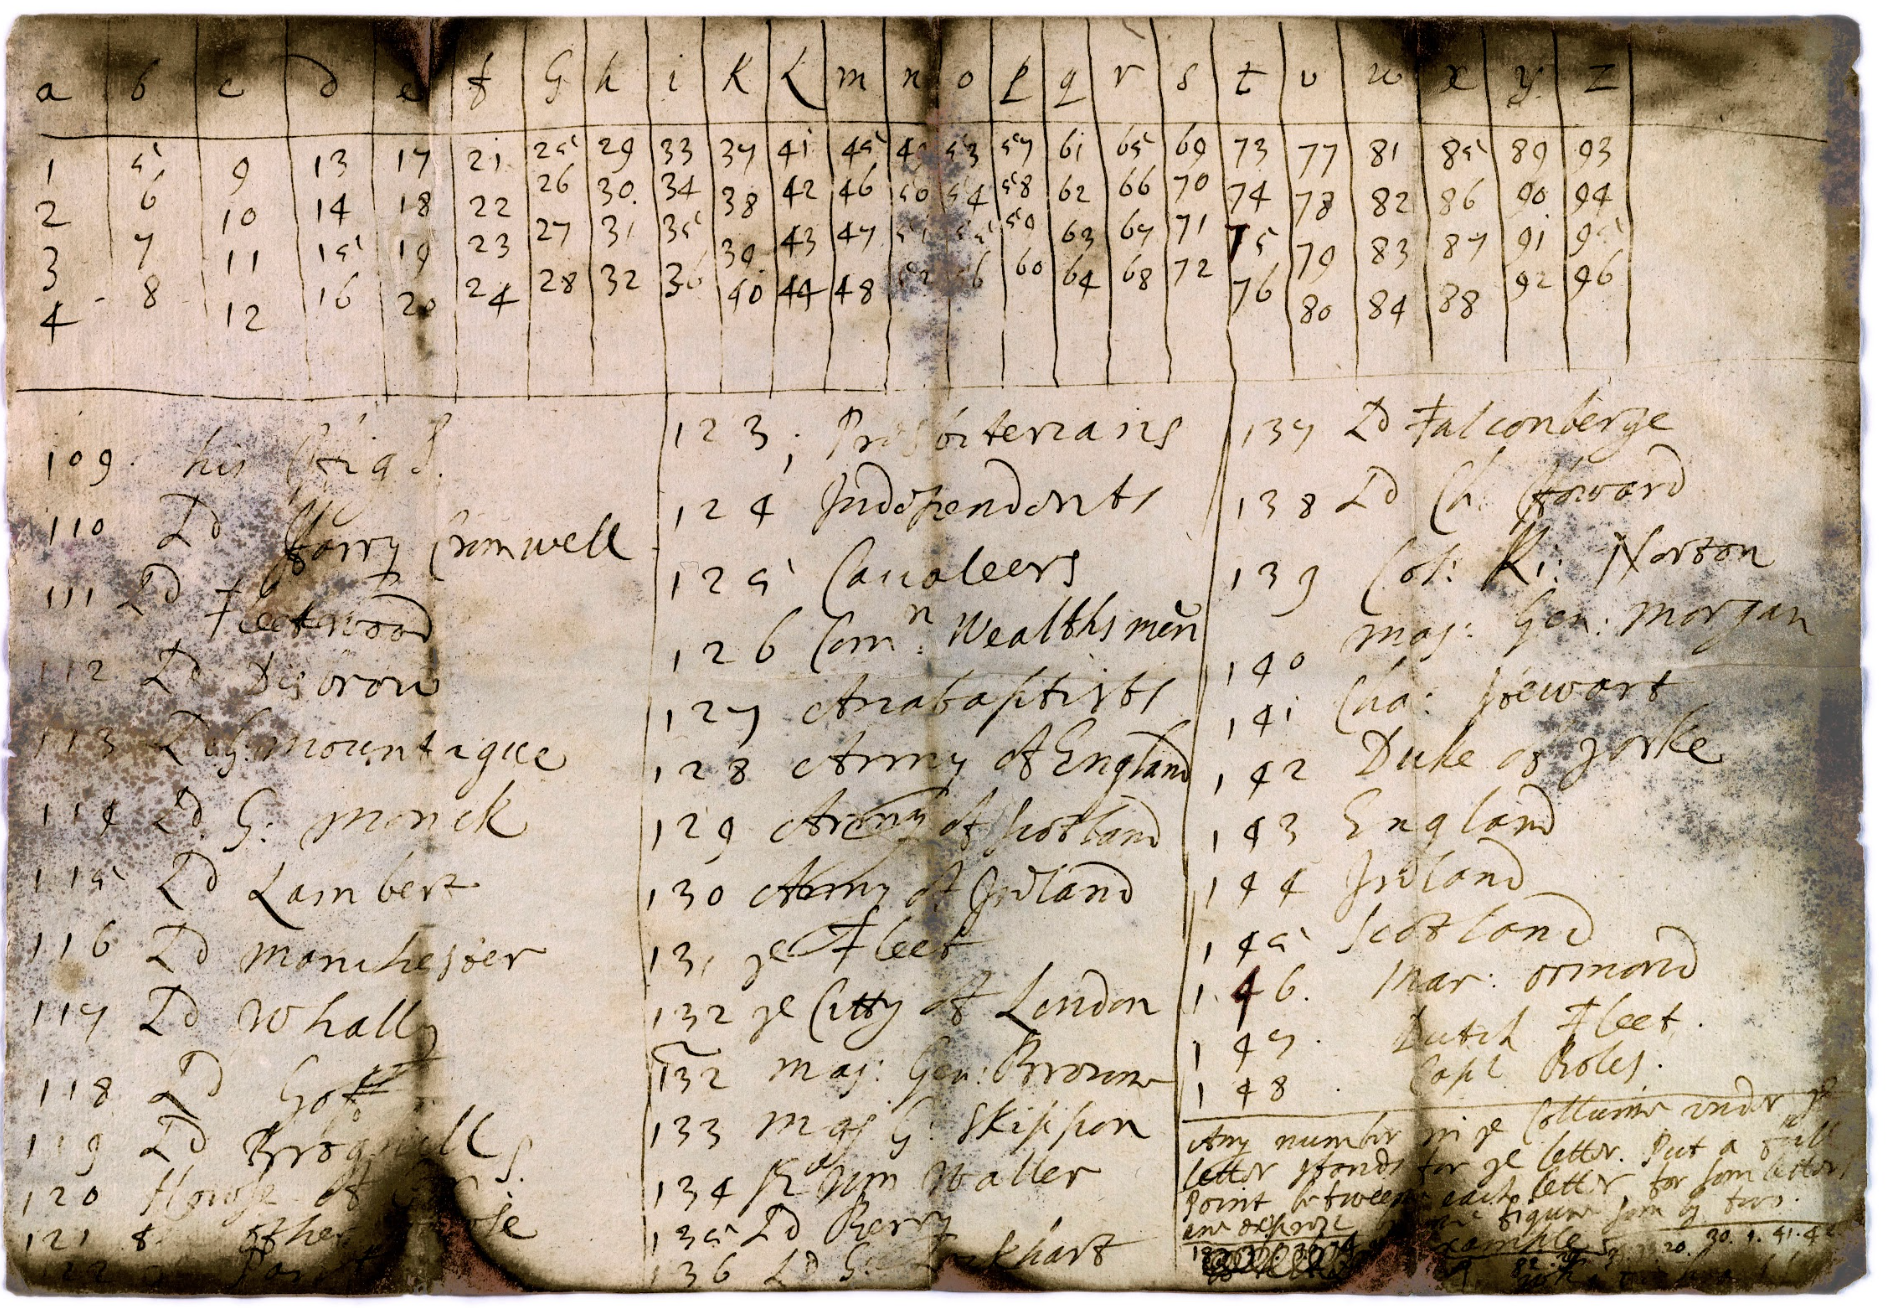 a b c d e f G h i K L m n o p q r s t v w x y z
1 5 9 13 17 21 25 29 33 37 41 45 49 53 57 61 65 69 73 77 81 85 89 93
2 6 10 14 18 22 26 30 34 38 42 46 50 54 58 62 66 70 74 78 82 86 90 94
3 7 11 15 19 23 27 31 35 39 43 47 51 55 59 63 67 71 75 79 83 87 91 95
4 8 12 16 20 24 28 32 36 40 44 48 52 56 60 64 68 72 76 80 84 88 92 96
109 his High
110 Ld Harry Cromwell
111 Ld Fleetwood
112 Ld Disbrow
113 Ld G: mountague
114 Ld G: monck
115 Ld Lambert
116 Ld manchester
117 Ld Whally
118 Ld Goff
119 Ld Broghills
120 Howse of Com
121 other
122
123 ; Presbiterians
124 Independents
125 Cavaleers
126 Comn: Wealthsmen
127 Anabaptists
128 Army of England
129 Army of Scotland
130 Army of Irland
131 ye Fleet
132 ye Citty of London
132 maj: Gen: Browne
133 maj G: Skippon
134 Sr Wm Waller
135 Ld Berry
136 Ld G: Lockhart
137 Ld Falconberge
138 Ld Ch: Howard
139 Col: Ri: Norton
140 maj: Gen: morgan
141 Cha: Stewart
142 Duke of yorke
143 England
144 Irland
145 Scotland
146. Mar: ormond
147. Dutch Fleet.
148. Capt Boles.
Any number in ye Collumne under ye
letter stands for ye letter. Put a full
Point betweene each letter for som letters
are exprest by one figure som by two.
Example
20. 30. 1. 41.